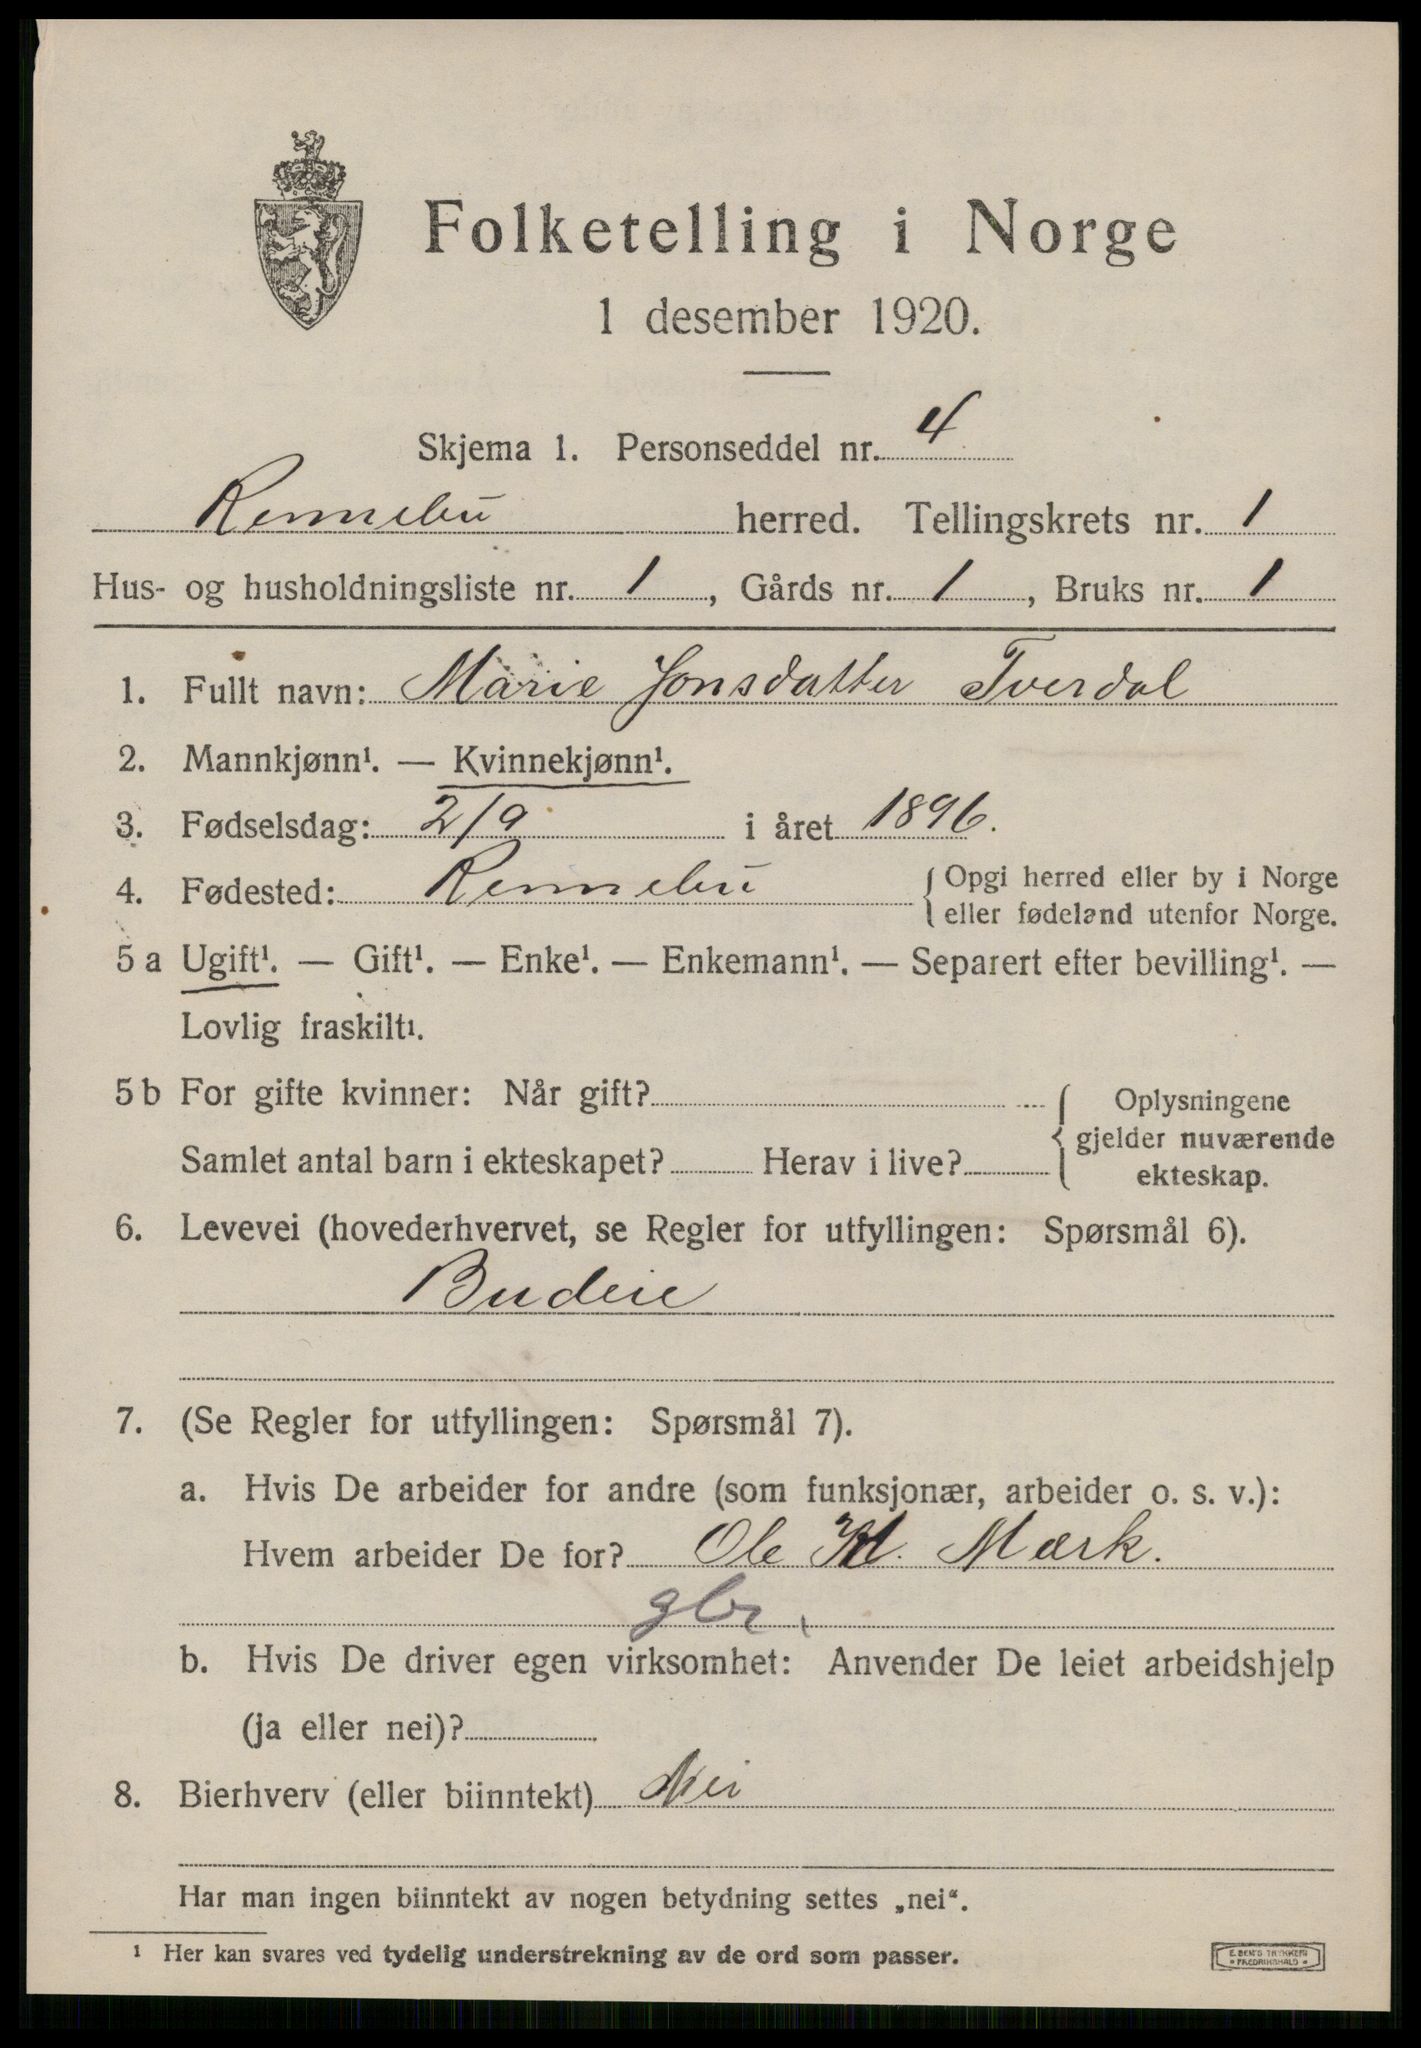 Folketelling i Norge
1 desember 1920.
Skjema 1. Personseddel nr. 4
Rennebu herred. Tellingskrets nr. 1
Hus- og husholdningsliste nr. 1, Gårds nr. 1, Bruks nr. 1
1. Fullt navn: Marie Jonsdatter Tverdal
2. Mannkjønn¹. — Kvinnekjønn¹.
3. Fødselsdag: 2/9 i året 1896.
4. Fødested: Rennebu { Opgi herred eller by i Norge
eller fødeland utenfor Norge.
5 a Ugift¹. — Gift¹. — Enke¹. — Enkemann¹. — Separert efter bevilling¹. —
Lovlig fraskilt¹.
5 b For gifte kvinner: Når gift?
Samlet antal barn i ekteskapet? Herav i live?
{ Oplysningene
gjelder nuværende
ekteskap.
6. Levevei (hovederhvervet, se Regler for utfyllingen: Spørsmål 6).
Budeie
7. (Se Regler for utfyllingen: Spørsmål 7).
a. Hvis De arbeider for andre (som funksjonær, arbeider o. s. v.):
Hvem arbeider De for? Ole Mærk.
gbr,
b. Hvis De driver egen virksomhet: Anvender De leiet arbeidshjelp
(ja eller nei)?
8. Bierhverv (eller biinntekt) Nei
Har man ingen biinntekt av nogen betydning settes „nei“.
¹ Her kan svares ved tydelig understrekning av de ord som passer.